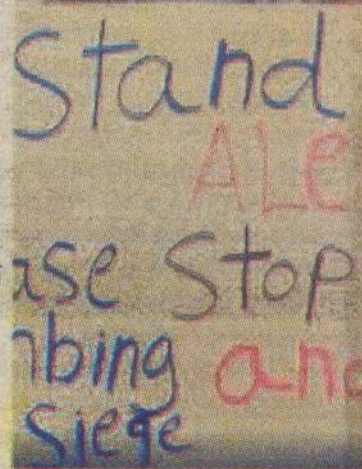 Stand
ALe
ase Stop
nbing and
Siege